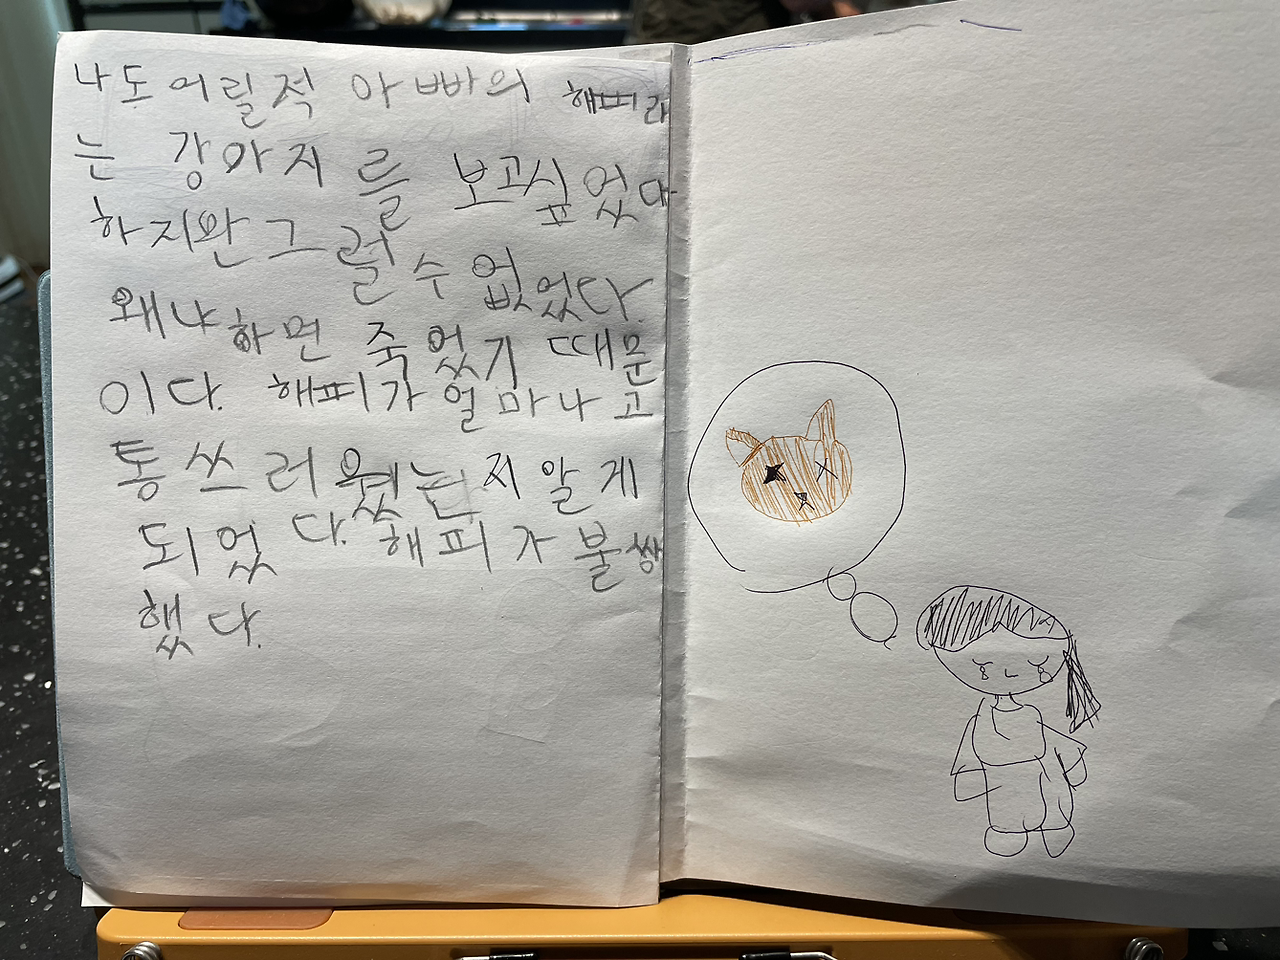 나도 어릴적 아빠의 해피라
는 강아지를 보고싶었다
하지만 그럴수 없었다.
왜냐하면 죽었기 때문
이다. 해피가 얼마나 고
통쓰러웠는지 알게
되었다. 해피가 불쌍
했다.